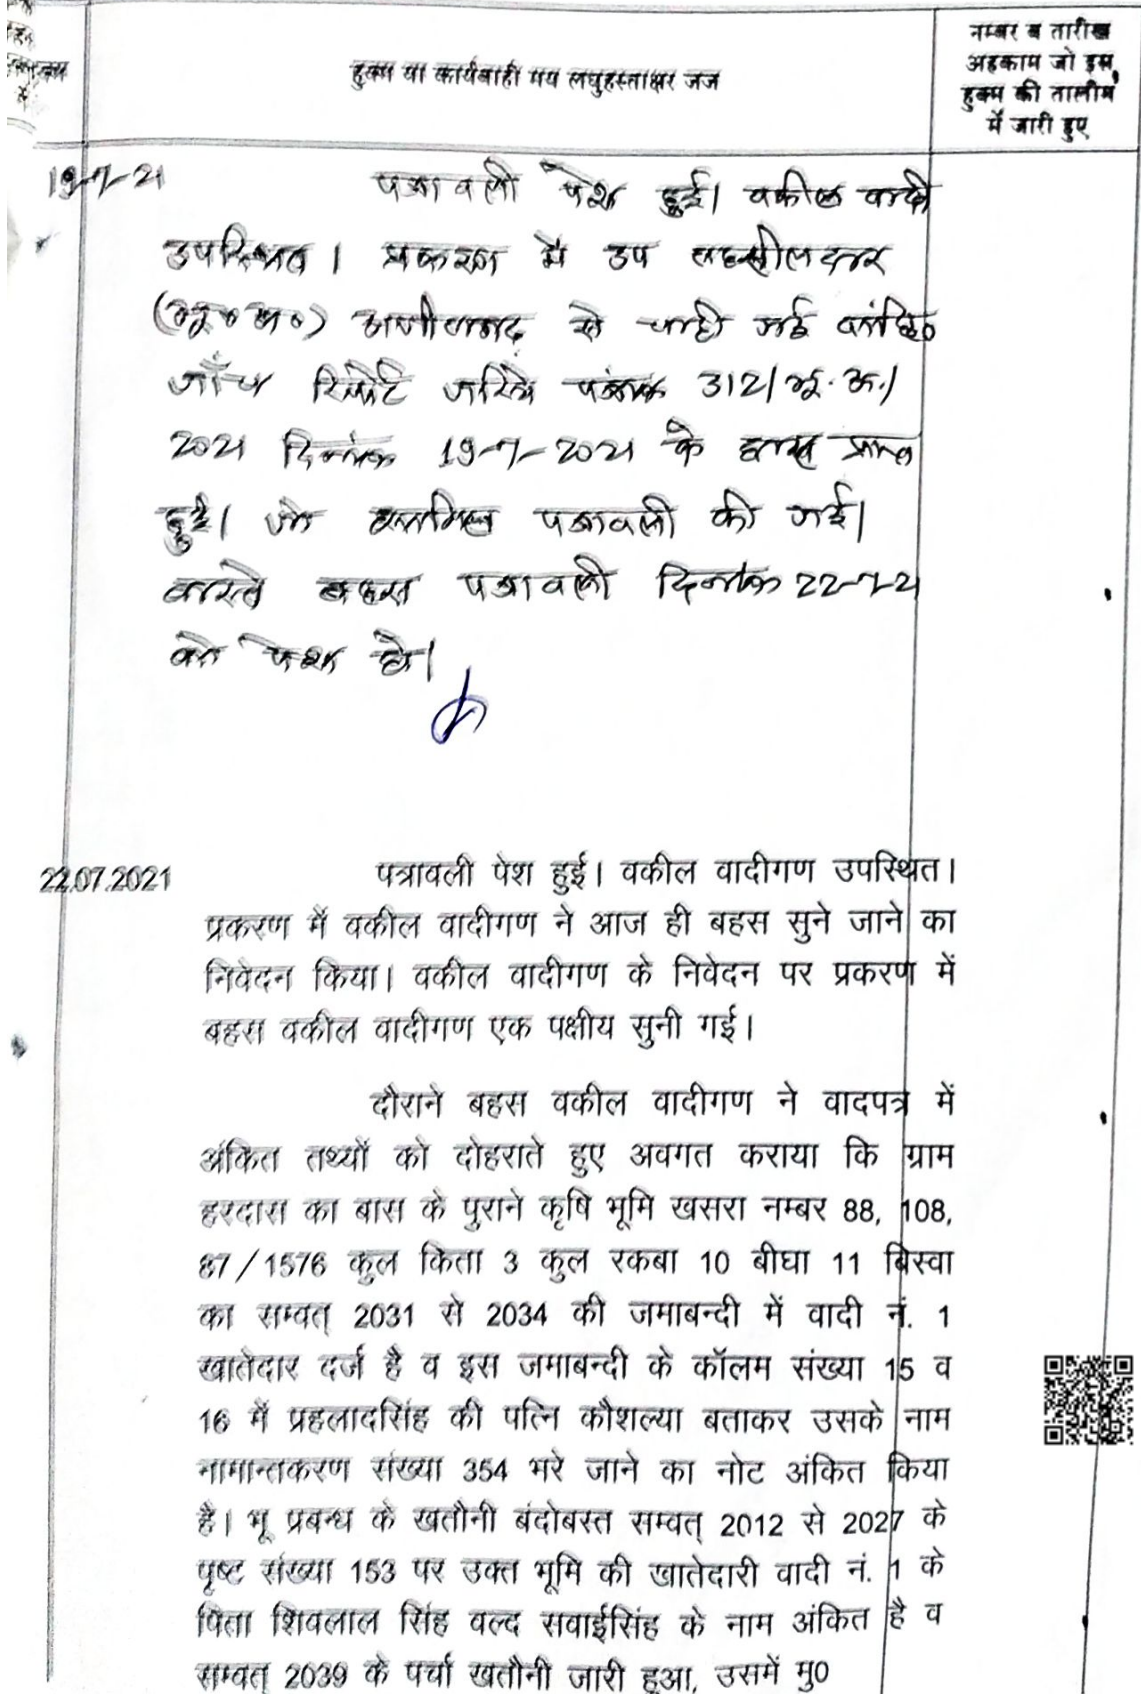 हुक्म या कार्यवाही मय लघुहस्ताक्षर जज
नम्बर व तारीख
अहकाम जो इस
हुक्म की तालीम
में जारी हुए
19-7-21
पत्रावली पेश हुई। वकील वादी
उपस्थित। प्रकरण में उप तहसीलदार
(भू०अ०) से चाही गई वांछित
जाँच रिपोर्ट जरिये पत्रांक 312/भू.अ./
2021 दिनांक 19-7-2021 के द्वारा प्राप्त
हुई। जो पत्रावली की गई।
वास्ते बहस पत्रावली दिनांक 22-7-21
को पेश हो।
22.07.2021
पत्रावली पेश हुई। वकील वादीगण उपस्थित।
प्रकरण में वकील वादीगण ने आज ही बहस सुने जाने का
निवेदन किया। वकील वादीगण के निवेदन पर प्रकरण में
बहस वकील वादीगण एक पक्षीय सुनी गई।
दौराने बहस वकील वादीगण ने वादपत्र में
अंकित तथ्यों को दोहराते हुए अवगत कराया कि ग्राम
हरदास का बास के पुराने कृषि भूमि खसरा नम्बर 88, 108,
87/1576 कुल किता 3 कुल रकबा 10 बीघा 11 बिस्वा
का सम्वत् 2031 से 2034 की जमाबन्दी में वादी नं. 1
खातेदार दर्ज है व इस जमाबन्दी के कॉलम संख्या 15 व
16 में प्रहलादसिंह की पत्नि कौशल्या बताकर उसके नाम
नामान्तकरण संख्या 354 भरे जाने का नोट अंकित किया
है। भू प्रबन्ध के खतौनी बंदोबस्त सम्वत् 2012 से 2027 के
पृष्ट संख्या 153 पर उक्त भूमि की खातेदारी वादी नं. 1 के
पिता शिवलाल सिंह वल्द सवाईसिंह के नाम अंकित है व
सम्वत् 2039 के पर्चा खतौनी जारी हुआ, उसमें मु0